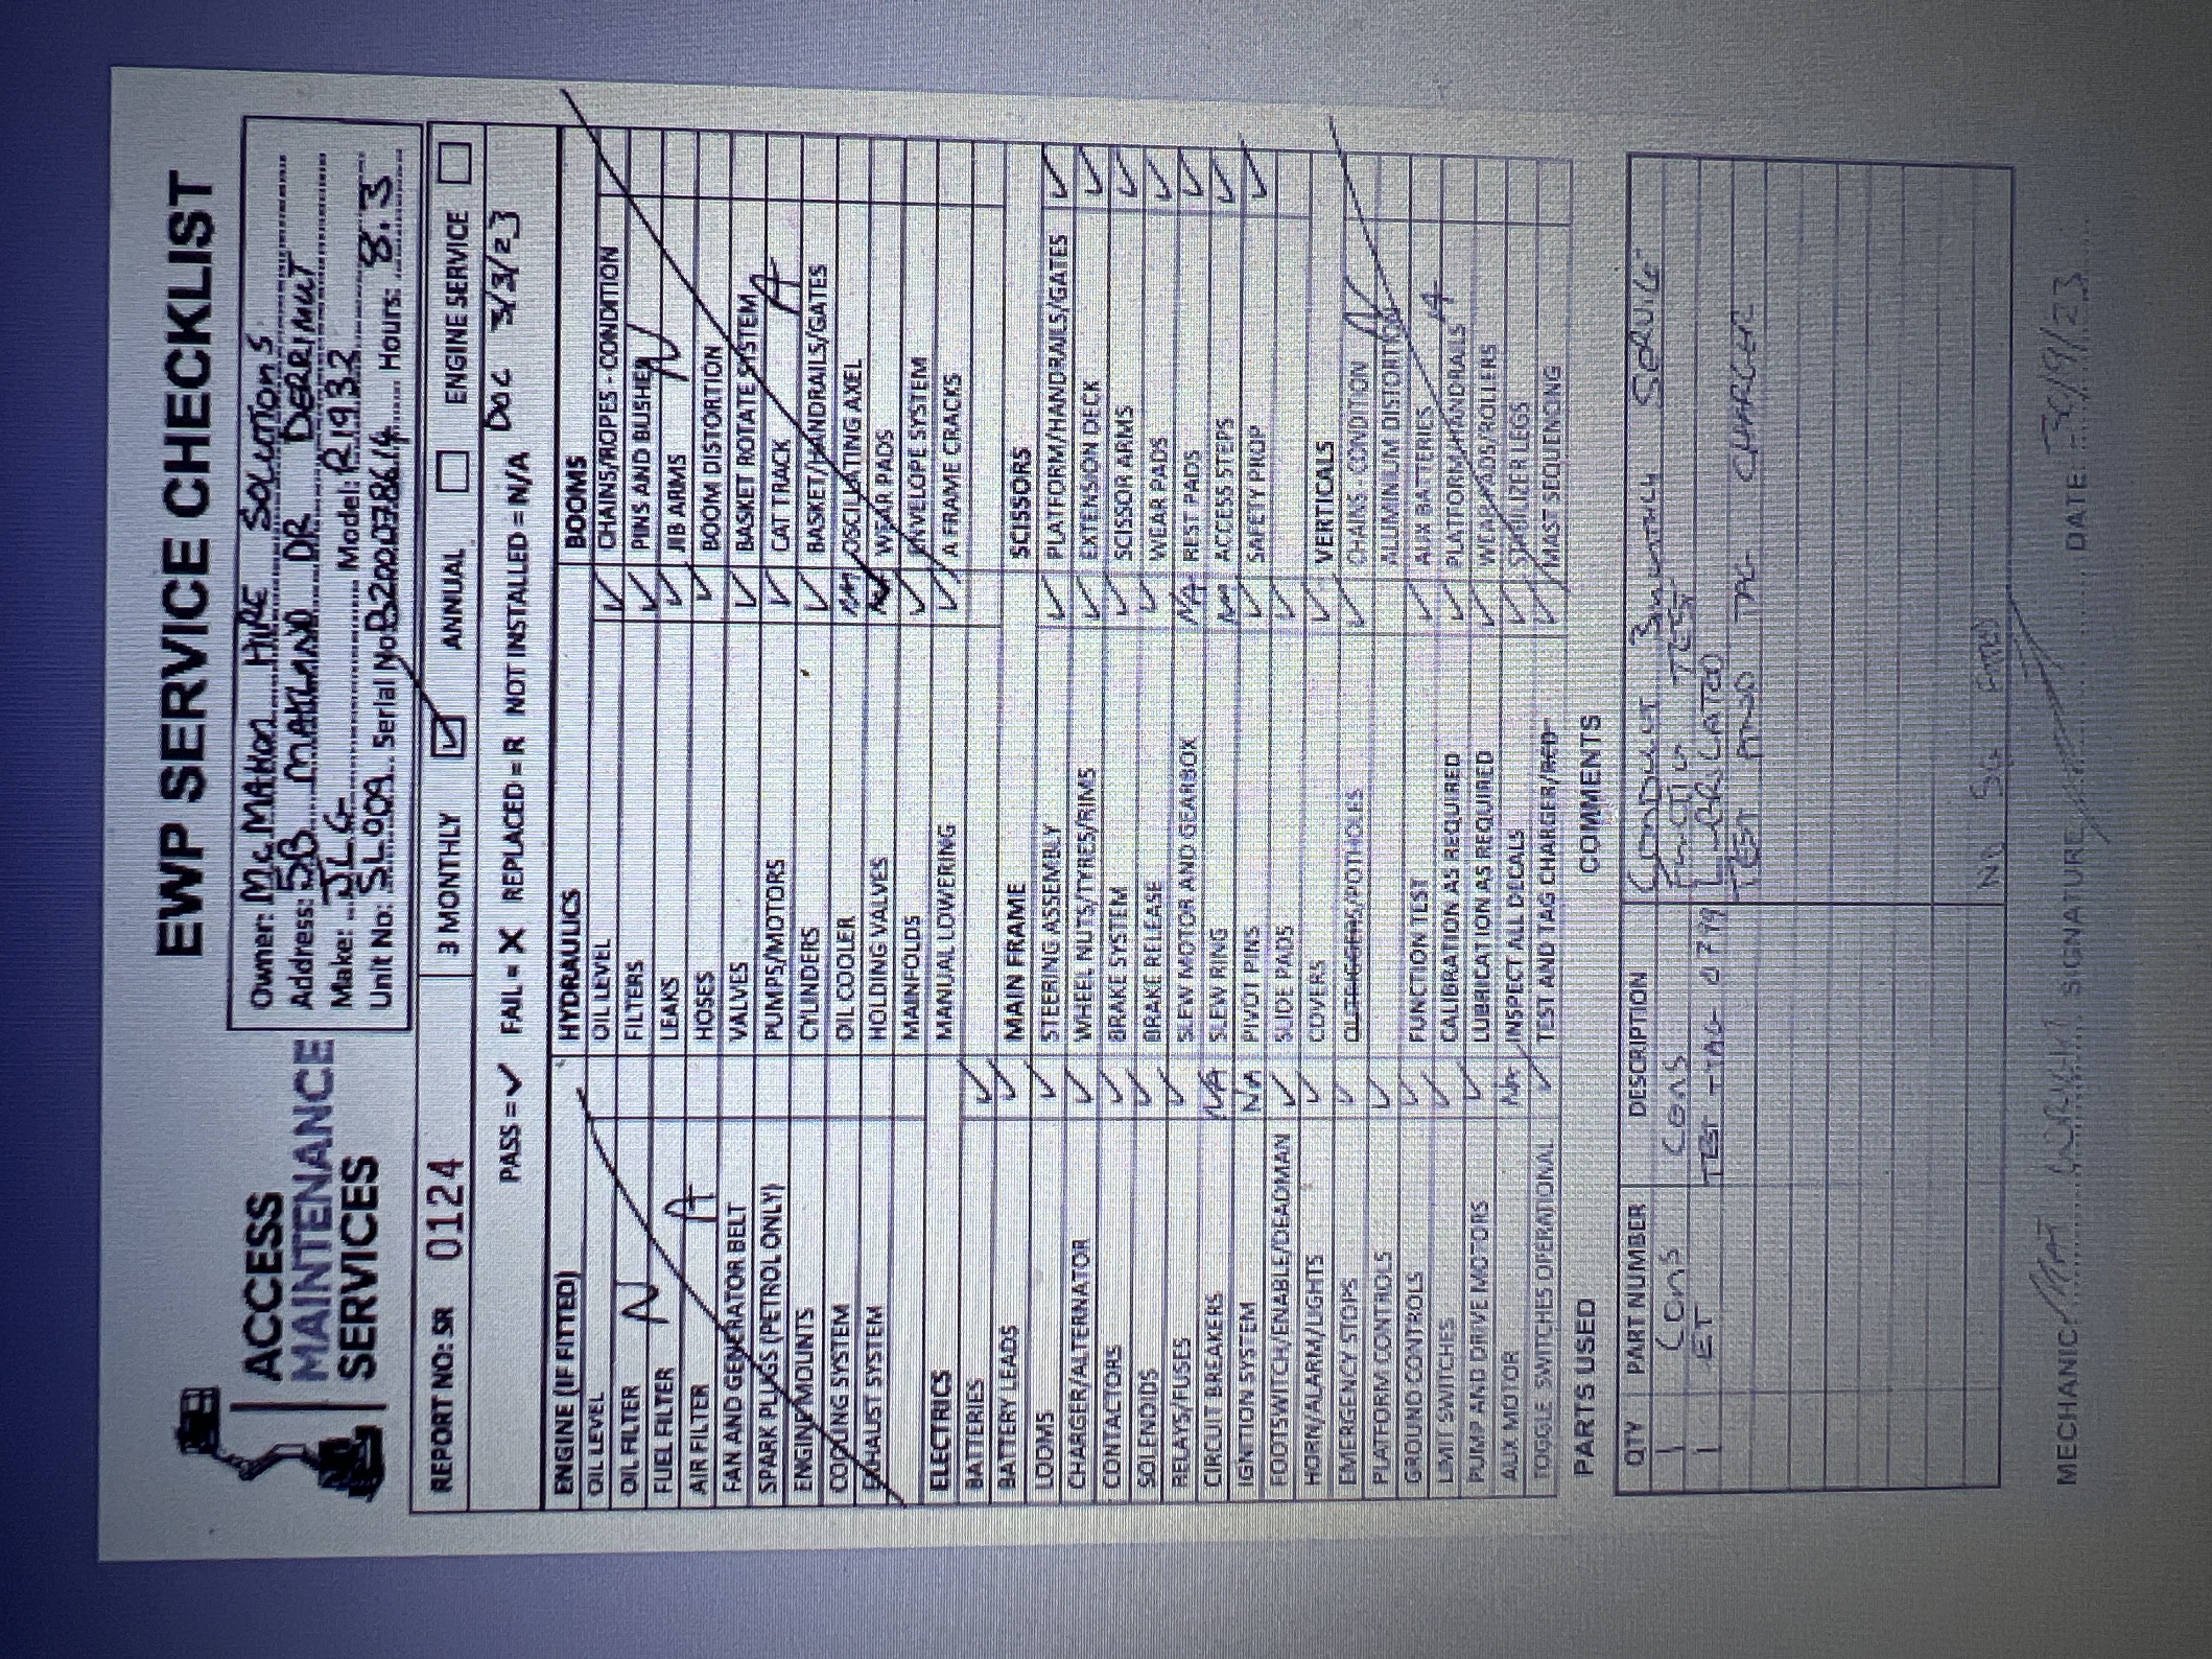 ACCESS
MAINTENANCE
SERVICES
EWP SERVICE CHECKLIST
Owner: Mc MAHON HIRE SOLUTIONS
Address: 5B MAITLAND DR DERIMUT
Make: JLG Model: R1932
Unit No: SL909 Serial No: B200078614 Hours: 8.3
REPORT NO: SR 0124
3 MONTHLY ☑ ANNUAL ☐ ENGINE SERVICE ☐
PASS = ✓ FAIL = X REPLACED = R NOT INSTALLED = N/A DOC 3/3/23
ENGINE (IF FITTED)
OIL LEVEL
OIL FILTER
FUEL FILTER
AIR FILTER
FAN AND GENERATOR BELT
SPARK PLUGS (PETROL ONLY)
ENGINE MOUNTS
COOLING SYSTEM
EXHAUST SYSTEM
N A
ELECTRICS
BATTERIES ✓
BATTERY LEADS ✓
LOOMS ✓
CHARGER/ALTERNATOR ✓
CONTACTORS ✓
SOLENOIDS ✓
RELAYS/FUSES ✓
CIRCUIT BREAKERS NA
IGNITION SYSTEM NA
FOOTSWITCH/ENABLE/DEADMAN ✓
HORN/ALARM/LIGHTS ✓
EMERGENCY STOPS ✓
PLATFORM CONTROLS ✓
GROUND CONTROLS ✓
LIMIT SWITCHES ✓
PUMP AND DRIVE MOTORS ✓
AUX MOTOR NA
TOGGLE SWITCHES OPERATIONAL ✓
HYDRAULICS
OIL LEVEL ✓
FILTERS ✓
LEAKS ✓
HOSES ✓
VALVES ✓
PUMPS/MOTORS ✓
CYLINDERS ✓
OIL COOLER NA
HOLDING VALVES
MAINFOLDS ✓
MANUAL LOWERING ✓
MAIN FRAME
STEERING ASSEMBLY ✓
WHEEL NUTS/TYRES/RIMS ✓
BRAKE SYSTEM ✓
BRAKE RELEASE ✓
SLEW MOTOR AND GEARBOX NA
SLEW RING NA
PIVOT PINS ✓
SLIDE PADS ✓
COVERS ✓
OUTRIGGERS/POTHOLES ✓
FUNCTION TEST ✓
CALIBRATION AS REQUIRED ✓
LUBRICATION AS REQUIRED ✓
INSPECT ALL DECALS ✓
TEST AND TAG CHARGER/RED ✓
BOOMS
CHAINS/ROPES - CONDITION
PINS AND BUSHES
JIB ARMS
BOOM DISTORTION
BASKET ROTATE SYSTEM
CAT TRACK
BASKET/HANDRAILS/GATES
OSCILIATING AXEL
WEAR PADS
ENVELOPE SYSTEM
A FRAME CRACKS
N A
SCISSORS
PLATFORM/HANDRAILS/GATES ✓
EXTENSION DECK ✓
SCISSOR ARMS ✓
WEAR PADS ✓
REST PADS ✓
ACCESS STEPS ✓
SAFETY PROP ✓
VERTICALS
CHAINS - CONDITION
ALUMINIUM DISTORTION
AUX BATTERIES
PLATFORM/HANDRAILS
WEAR PADS/ROLLERS
STABILIZER LEGS
MAST SEQUENCING
N A
PARTS USED
QTY PART NUMBER DESCRIPTION
1 CONS CONS
1 ET TEST TAG 0799
COMMENTS
CONDUCT 3 MONTHLY SERVICE
FUNCTION TEST
LUBRICATED
TEST AND TAG CHARGER
MECHANIC MAT SIGNATURE DATE 3/9/23